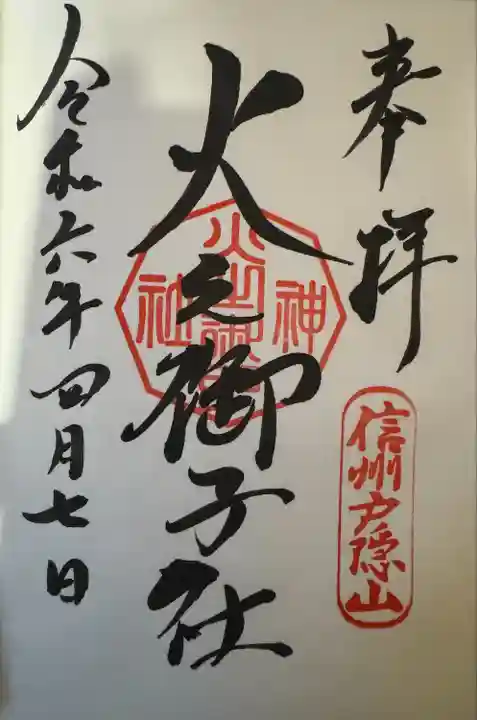 奉拝
信州戸隠山
火之御子社
神
社
令和六年四月七日